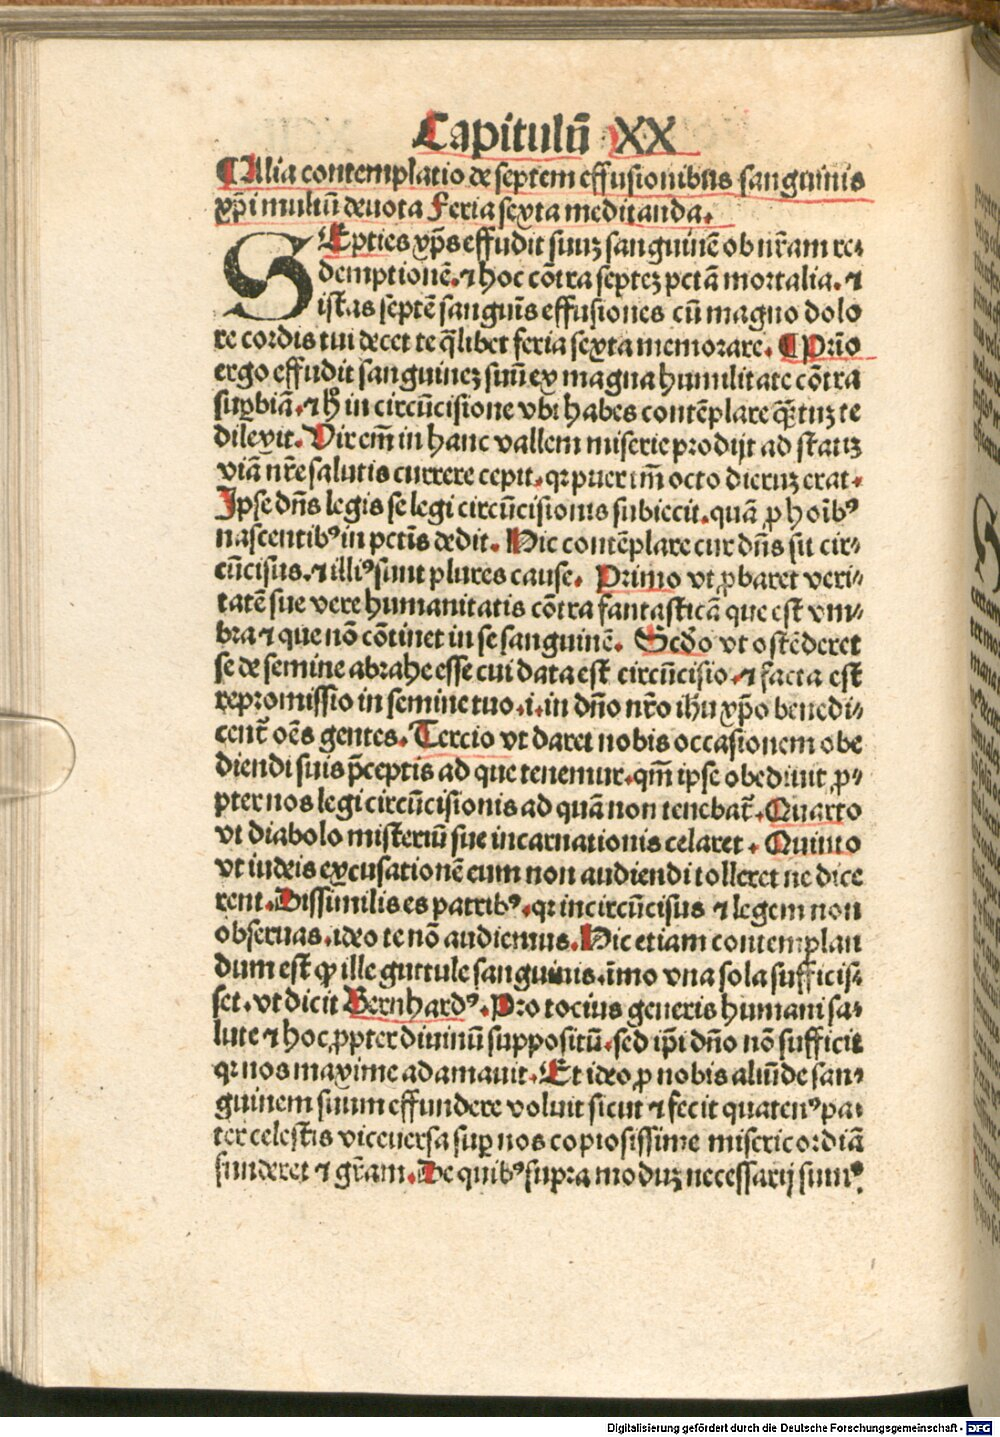 Capitulū XX
¶Alia contemplatio de septem effusionibus sanguinis
xp̄i multū deuota Feria sexta meditanda.
SEpties xp̄s effudit suuꝫ sanguinē ob nr̄am re⸗
demptionē. ⁊ hoc cōtra septeꝫ pctā mortalia. ⁊
istas septē sanguīs effusiones cū magno dolo
re cordis tui decet te q̄libet feria sexta memorare. ¶Pri̅o
ergo effudit sanguineꝫ suū ex magna humilitate cōtra
suꝑbiā. ⁊ h̊ in circūcisione vbi habes contēplare q̄ꝫtuꝫ te
dilexit. Vir em̄ in hanc vallem miserie prodijt ad statiꝫ
viā nr̄e salutis currere cepit. qꝛ puer im̄ octo dieruꝫ erat.
Ipse dn̄s legis se legi circūcisionis subiecit. quā ꝓ hoīb⁹
nascentib⁹ in pctīs dedit. Hic contēplare cur dn̄s sit cir⸗
cūcisus. ⁊ illi⁹ sunt plures cause. Primo vt ꝓbaret veri⸗
tatē sue vere humanitatis cōtra fantasticā que est vm⸗
bra ⁊ que nō cōtinet in se sanguinē. Scd̄o vt ostēderet
se de semine abrahe esse cui data est circūcisio. ⁊ facta est
repromissio in semine tuo. i. in dn̄o nr̄o ihu xp̄o benedi⸗
cent̄ oēs gentes. Tercio vt daret nobis occasionem obe
diendi suis p̄ceptis ad que tenemur. qm̄ ipse obediuit ꝓ⸗
pter nos legi circūcisionis ad quā non tenebat̄. Quarto
vt diabolo misteriū sue incarnationis celaret. Quinto
vt iudeis excusationē eum non audiendi tolleret ne dice
rent. Dissimilis es patrib⁹. qꝛ incircūcisus ⁊ legem non
obseruas. ideo te nō audiemus. Hic etiam contemplan
dum est ꝙ ille guttule sanguinis. īmo vna sola sufficis⸗
set. vt dicit Bernhard⁹. Pro tocius generis humani sa⸗
lute ⁊ hoc ꝓpter diuinū suppositū. sed ip̄i dn̄o nō sufficit
qꝛ nos maxime adamauit. Et ideo ꝓ nobis aliūde san⸗
guinem suum effundere voluit sicut ⁊ fecit quaten⁹ pa⸗
ter celestis viceuersa suꝑ nos copiosissime misericordiā
funderet ⁊ gr̄am. De quib⁹ supra moduꝫ necessarij sum⁹.
Digitalisierung gefördert durch die Deutsche Forschungsgemeinschaft - DFG